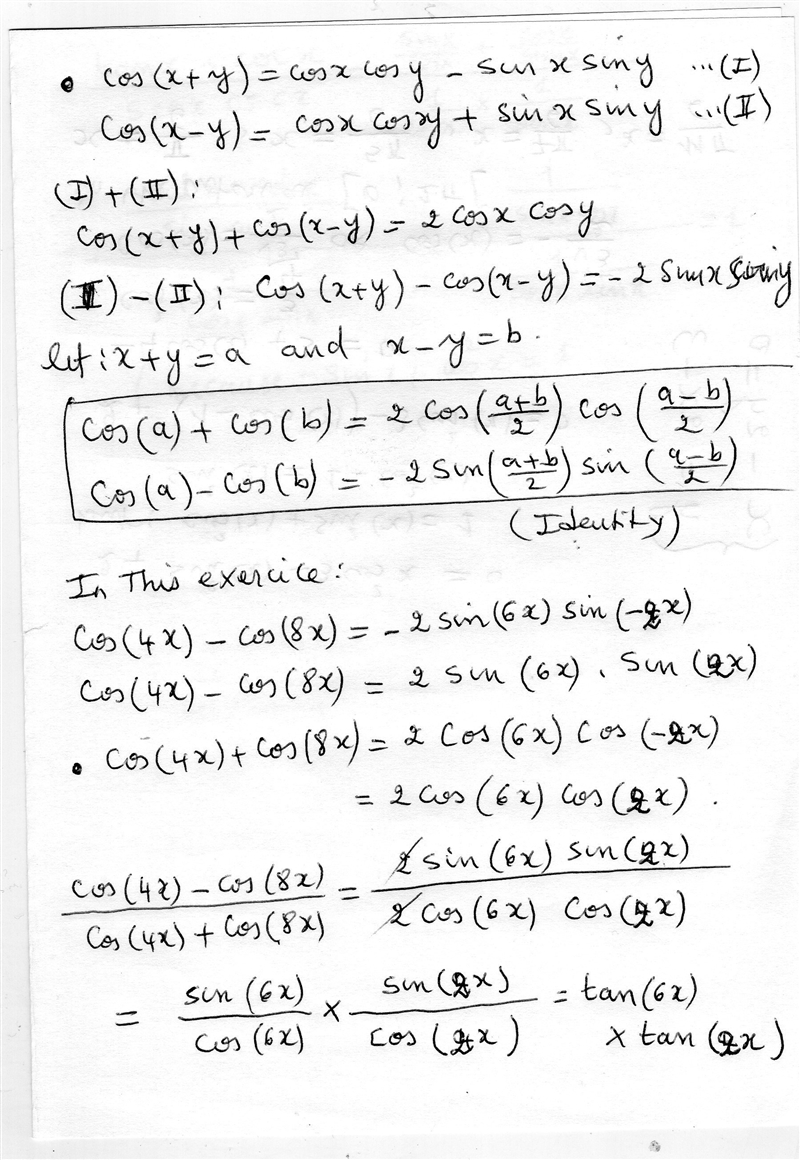 • cos(x+y) = cosx cosy - sinx siny ...(I)
Cos(x-y) = cosx cosy + sinx siny ...(II)
(I)+(II):
cos(x+y)+cos(x-y) = 2 cosx cosy
(I)-(II): Cos(x+y) - cos(x-y) = -2 sinx siny
let: x+y = a and x-y = b.
Cos(a) + Cos(b) = 2 Cos((a+b)/2) Cos((a-b)/2)
Cos(a) - Cos(b) = -2 Sin((a+b)/2) sin((a-b)/2)
(Identity)
In This exercice:
Cos(4x) - cos(8x) = -2 sin(6x) sin(-2x)
Cos(4x) - Cos(8x) = 2 sin(6x) . Sin(2x)
• Cos(4x) + cos(8x) = 2 Cos(6x) Cos(-2x)
= 2 cos(6x) cos(2x).
(cos(4x) - cos(8x))/(Cos(4x) + Cos(8x)) = (2 sin(6x) sin(2x))/(2 cos(6x) Cos(2x))
= sin(6x)/Cos(6x) × sin(2x)/Cos(2x) = tan(6x)
× tan(2x)